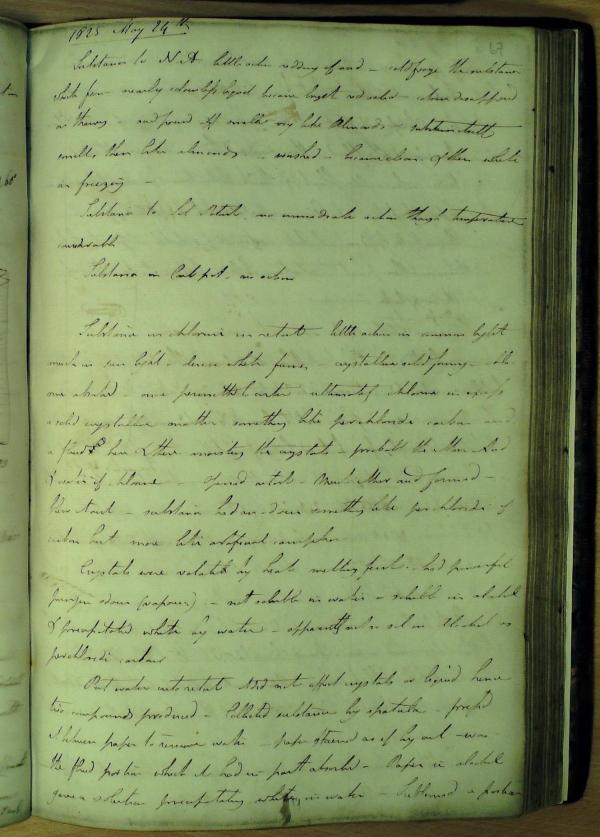 1825 May 24th
67
Substance to N A little action reddening of acid - cold froze the substance
white fumes nearly colourless liquid became bright red color - colour disappeared
in thawing - and found it smelt very like Almonds - substance itself
smells then like almonds - washed - became clear & then white
on freezing -
Substance to Sol Potash no immediate action though temperature
considerable
Substance in Carb pot. no action
Substance in chlorine in retort - little action in common light
much in sun light - dense white fumes - crystalline solid forming - chlo-
rine absorbed - more permitted to enter ultimately chlorine in excess
a solid crystalline matter something like perchloride carbon and
a fluid here & there moistening the crystals - probably the Mur Acid
& water of chlorine - opened retort - Much Mur acid formed -
blew it out - substance had an odour something like perchloride of
carbon but more like artificial camphor
Crystals were volatile by heat melting first - had powerful
odour (vapour) - not soluble in water - soluble in alcohol
& precipitated white by water - apparently not so sol in Alcohol as
perchloride carbon
Put water into retort did not affect crystals or liquid hence
two compounds produced - Collected substance by spatula - pressed
it between paper to remove water - paper stained as if by oil - was
the fluid portion which it had in part absorbed - Paper in alcohol
gave a solution precipitating white in water - Sublimed a portion